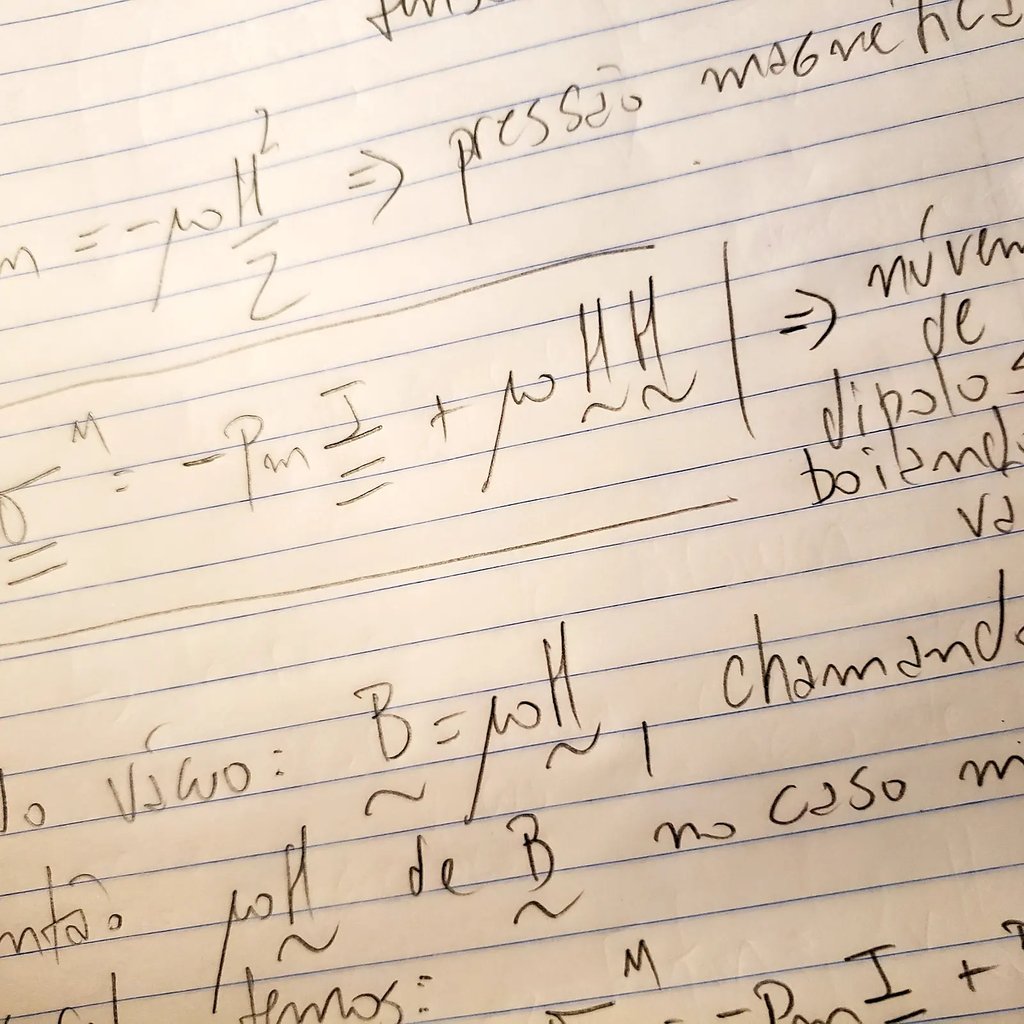 m = -μ₀H²/2 ⇒ pressão magnética
σ̳ᴹ = -Pm I̳ + μ₀H̰H̰ ⇒ núvem
de
dipolos
boiando
vácuo: B̰ = μ₀H̰, chamando
μ₀H̰ de B̰ no caso
temos: σᴹ = -Pm I +